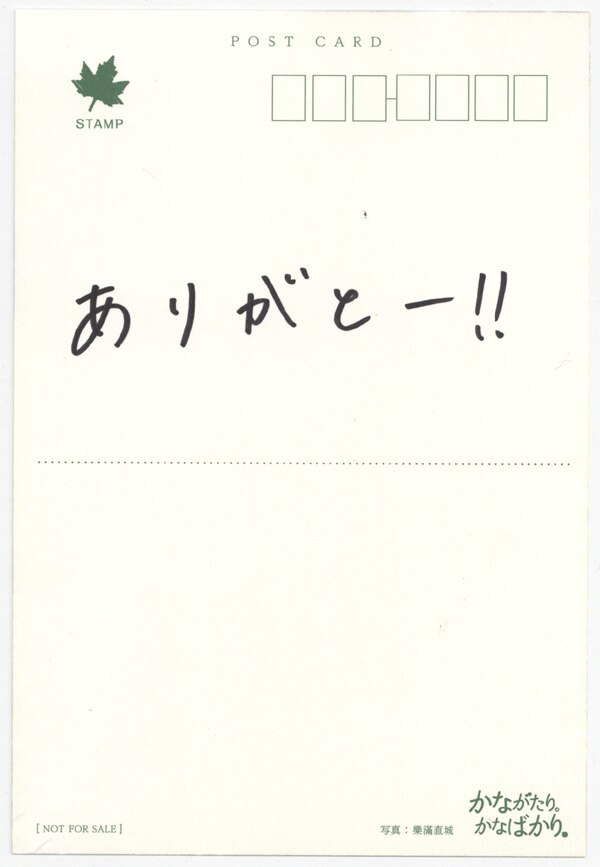 POST CARD
STAMP
ありがとー!!
[ NOT FOR SALE ]
写真：樂滿直城
かながたり。
かなばかり。